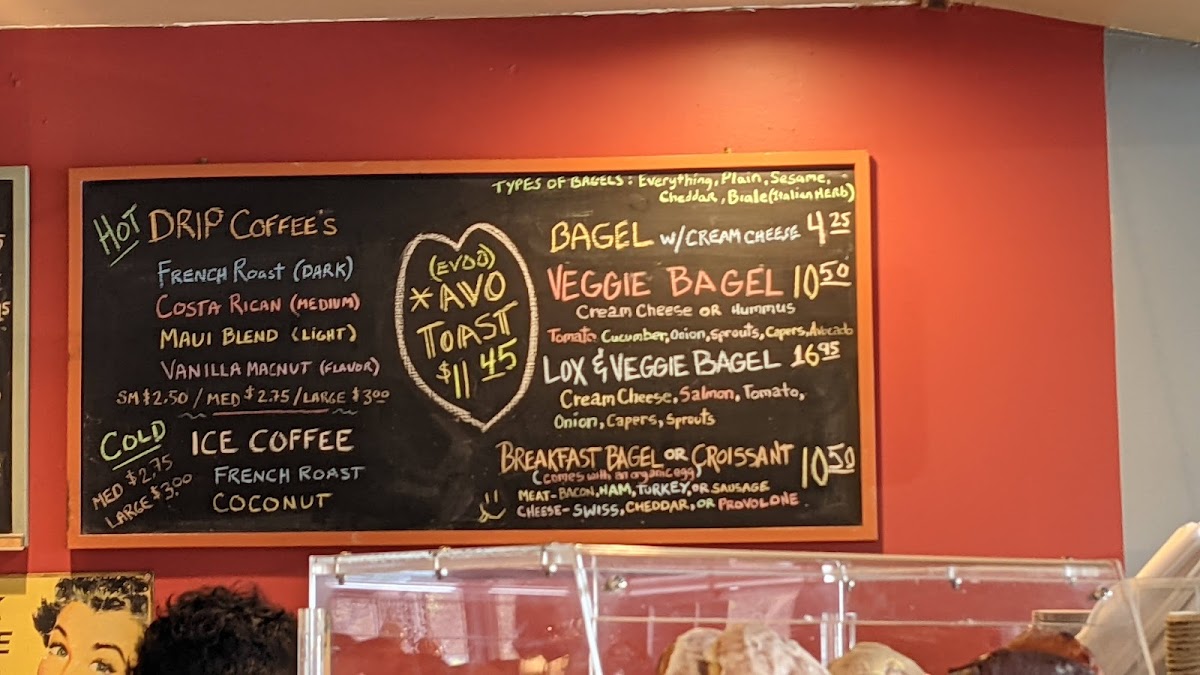 HOT DRIP COFFEE'S
FRENCH ROAST (DARK)
COSTA RICAN (MEDIUM)
MAUI BLEND (LIGHT)
VANILLA MACNUT (FLAVOR)
SM $2.50 / MED $2.75 / LARGE $3.00
COLD ICE COFFEE
MED $2.75
LARGE $3.00
FRENCH ROAST
COCONUT
(EVOO)
*AVO
TOAST
$11.45
TYPES OF BAGELS: Everything, Plain, Sesame,
Cheddar, Biale (Italian HERB)
BAGEL W/CREAM CHEESE 4.25
VEGGIE BAGEL 10.50
Cream Cheese OR Hummus
Tomato, Cucumber, Onion, Sprouts, Capers, Avocado
LOX & VEGGIE BAGEL 16.95
Cream Cheese, Salmon, Tomato,
Onion, Capers, Sprouts
BREAKFAST BAGEL OR CROISSANT 10.50
(comes with an organic egg)
MEAT-BACON, HAM, TURKEY, OR SAUSAGE
CHEESE-SWISS, CHEDDAR, OR PROVOLONE